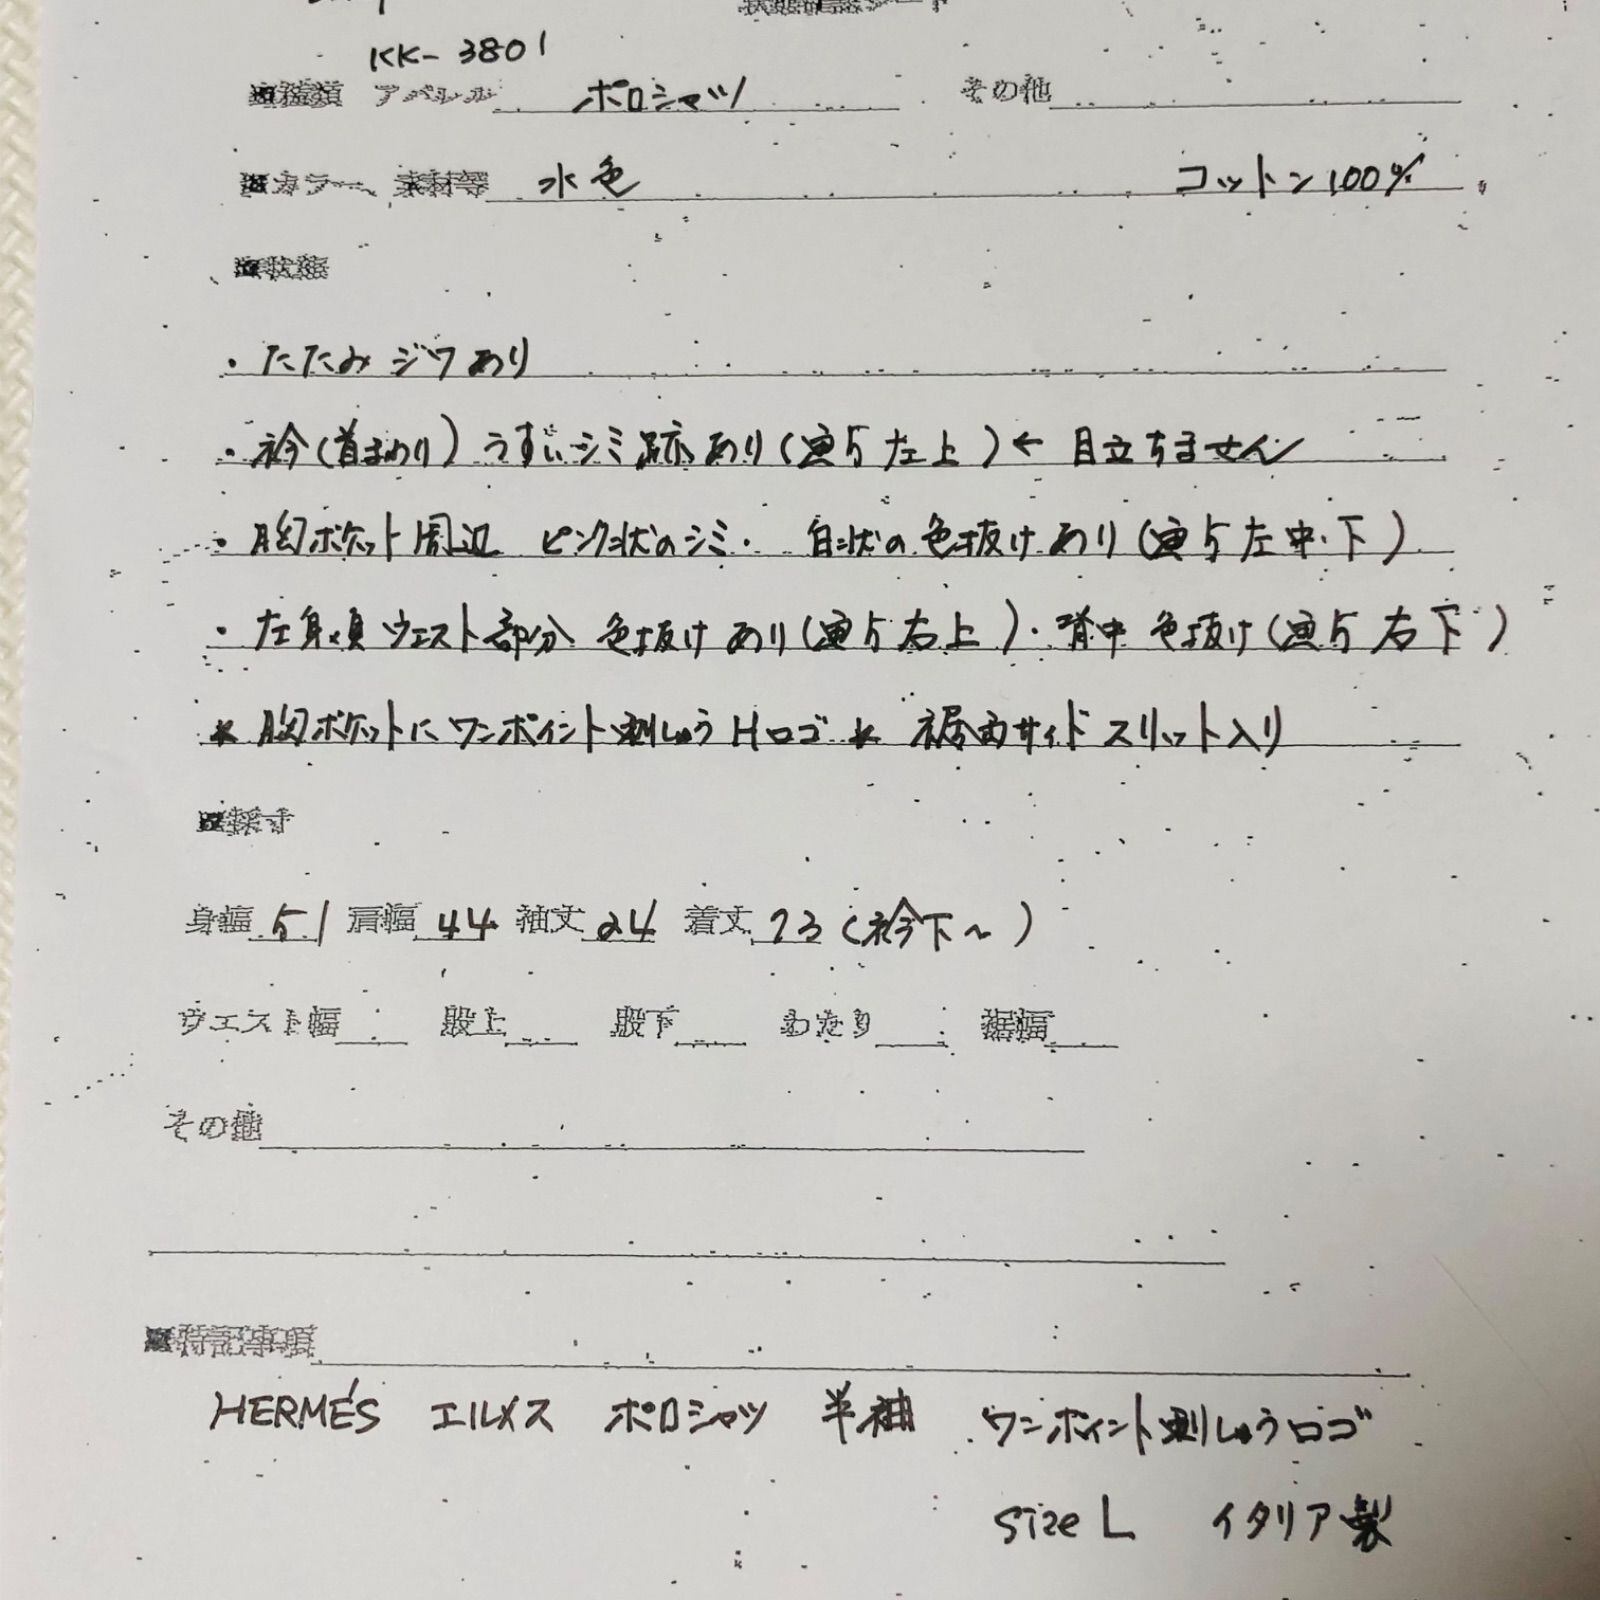 KK-3801
■種類 アパレル ポロシャツ その他
■カラー、素材等 水色 コットン100%
■状態
・たたみジワあり
・衿(首まわり)うすいシミ跡あり(画5左上)←目立ちません
・胸ポケット周辺 ピンク状のシミ・ 白状の色抜けあり(画5左中・下)
・左身頃ウエスト部分 色抜けあり(画5右上)・背中 色抜け(画5右下)
* 胸ポケットにワンポイント刺しゅうHロゴ * 裾両サイドスリット入り
■採寸
身幅 51 肩幅 44 袖丈 24 着丈 73(衿下〜)
ウエスト幅 股上 股下 わたり 裾幅
その他
■特記事項
HERMÉS エルメス ポロシャツ 半袖 ワンポイント刺しゅうロゴ
size L イタリア製